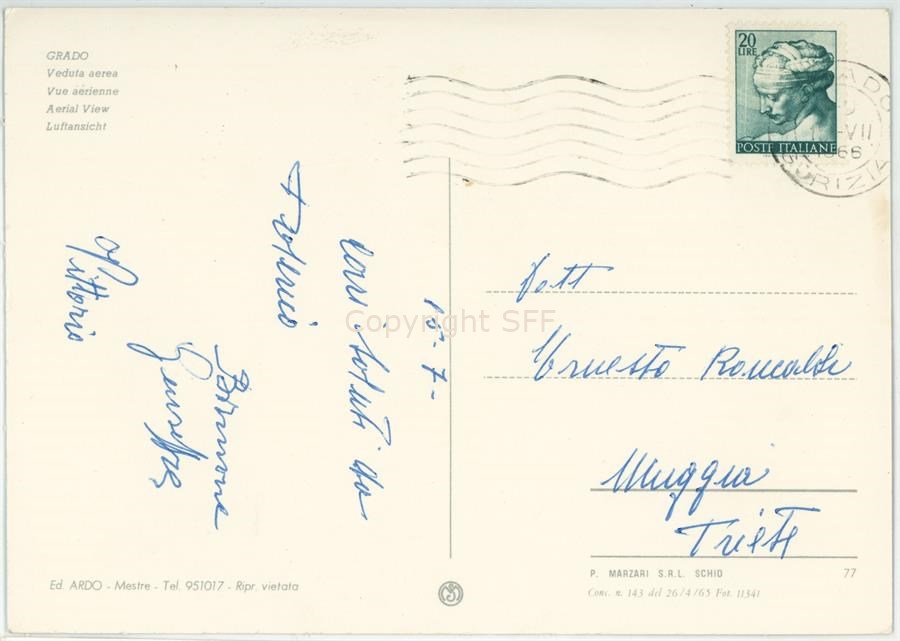 GRADO
Veduta aerea
Vue aérienne
Aerial View
Luftansicht
20
LIRE
POSTE ITALIANE
-VII
1966
GORIZIA
15-7-
Cari saluti da
Vittorio
Dott
Ernesto Roncaldi
Muggia
Trieste
Copyright SFF
Ed. ARDO - Mestre - Tel. 951017 - Ripr. vietata
P. MARZARI S.R.L. SCHIO
77
Conc. n. 143 del 26/4/65 Fot. 11341